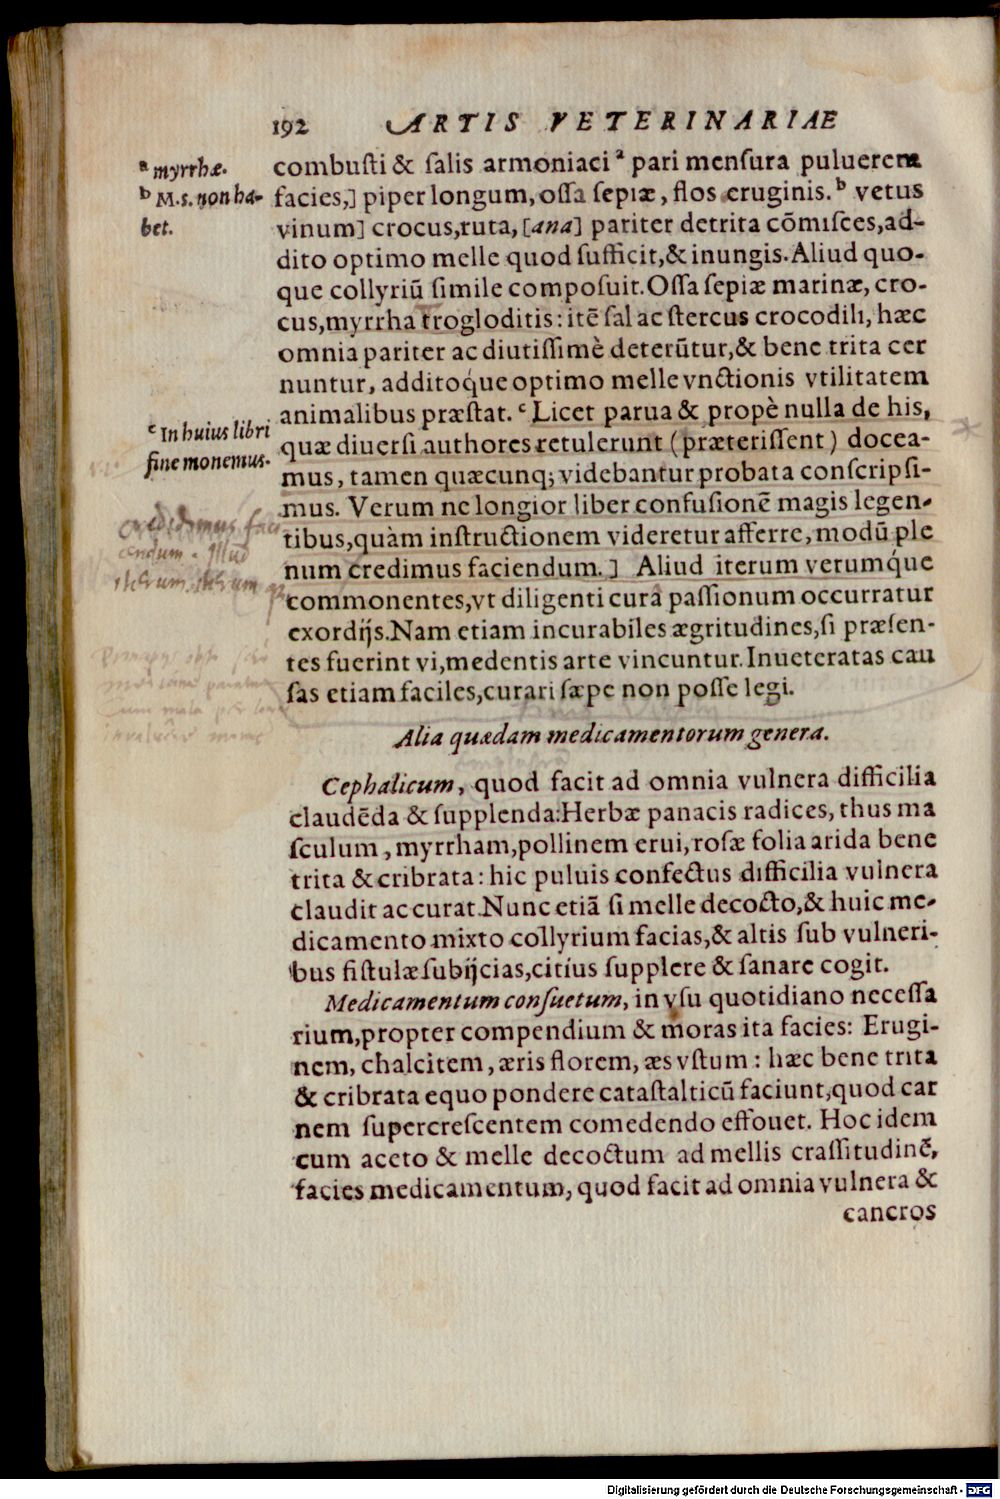 192 ARTIS VETERINARIAE
combusti & salis armoniaci ᵃ pari mensura puluerem
facies,] piper longum, ossa sepiæ, flos eruginis. ᵇ vetus
vinum] crocus, ruta, [ana] pariter detrita cōmisces, ad-
dito optimo melle quod sufficit, & inungis. Aliud quo-
que collyriū simile composuit. Ossa sepiæ marinæ, cro-
cus, myrrha trogloditis: itē sal ac stercus crocodili, hæc
omnia pariter ac diutissimè deterūtur, & bene trita cer
nuntur, additoq́ue optimo melle vnctionis vtilitatem
animalibus præstat. ᶜ Licet parua & propè nulla de his,
quæ diuersi authores retulerunt (præterissent) docea-
mus, tamen quæcunq; videbantur probata conscripsi-
mus. Verum ne longior liber confusionē magis legen-
tibus, quàm instructionem videretur afferre, modū ple
num credimus faciendum.] Aliud iterum verumq́ue
commonentes, vt diligenti cura passionum occurratur
exordijs. Nam etiam incurabiles ægritudines, si præsen-
tes fuerint vi, medentis arte vincuntur. Inueteratas cau
sas etiam faciles, curari sæpe non posse legi.
Alia quædam medicamentorum genera.
Cephalicum, quod facit ad omnia vulnera difficilia
claudēda & supplenda: Herbæ panacis radices, thus ma
sculum, myrrham, pollinem erui, rosæ folia arida bene
trita & cribrata: hic puluis confectus difficilia vulnera
claudit ac curat. Nunc etiā si melle decocto, & huic me-
dicamento mixto collyrium facias, & altis sub vulneri-
bus fistulæ subijcias, citius supplere & sanare cogit.
Medicamentum consuetum, in vsu quotidiano necessa
rium, propter compendium & moras ita facies: Erugi-
nem, chalcitem, æris florem, æs vstum: hæc bene trita
& cribrata equo pondere catastalticū faciunt, quod car
nem supercrescentem comedendo effouet. Hoc idem
cum aceto & melle decoctum ad mellis crassitudinē,
facies medicamentum, quod facit ad omnia vulnera &
cancros
ᵃ myrrhæ.
ᵇ M.s. non ha-
bet.
ᶜ In huius libri
fine monemus.
credidimus faci
endum. Illud
iterum iterum q;
Digitalisierung gefördert durch die Deutsche Forschungsgemeinschaft - DFG